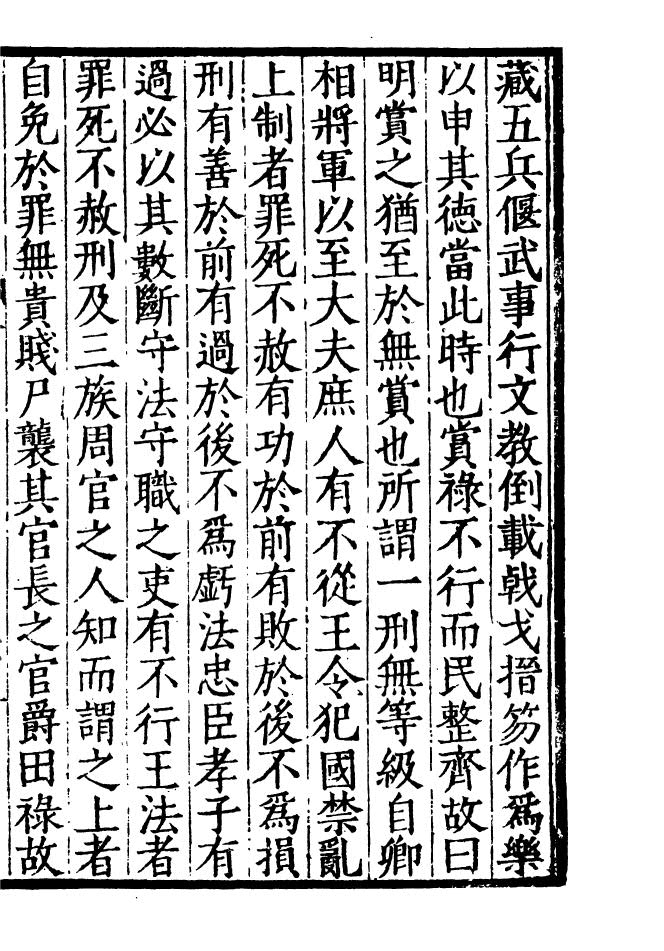 藏五兵偃武事行文教倒載戟戈搢笏作爲樂
以申其徳當此時也賞祿不行而民整齊故曰
明賞之猶至於無賞也所謂一刑無等級自卿
相將軍以至大夫庶人有不從王令犯國禁亂
上制者罪死不赦有功於前有敗於後不爲損
刑有善於前有過於後不爲虧法忠臣孝子有
過必以其數斷守法守職之吏有不行王法者
罪死不赦刑及三族周官之人知而謂之上者
自免於罪無貴賤尸襲其官長之官爵田祿故